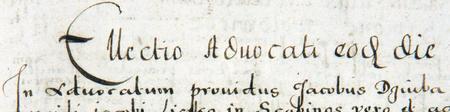 Ellectio Advocati eod die
In Advocatum providus Jacobus Dziuba
in Scabinos vero et